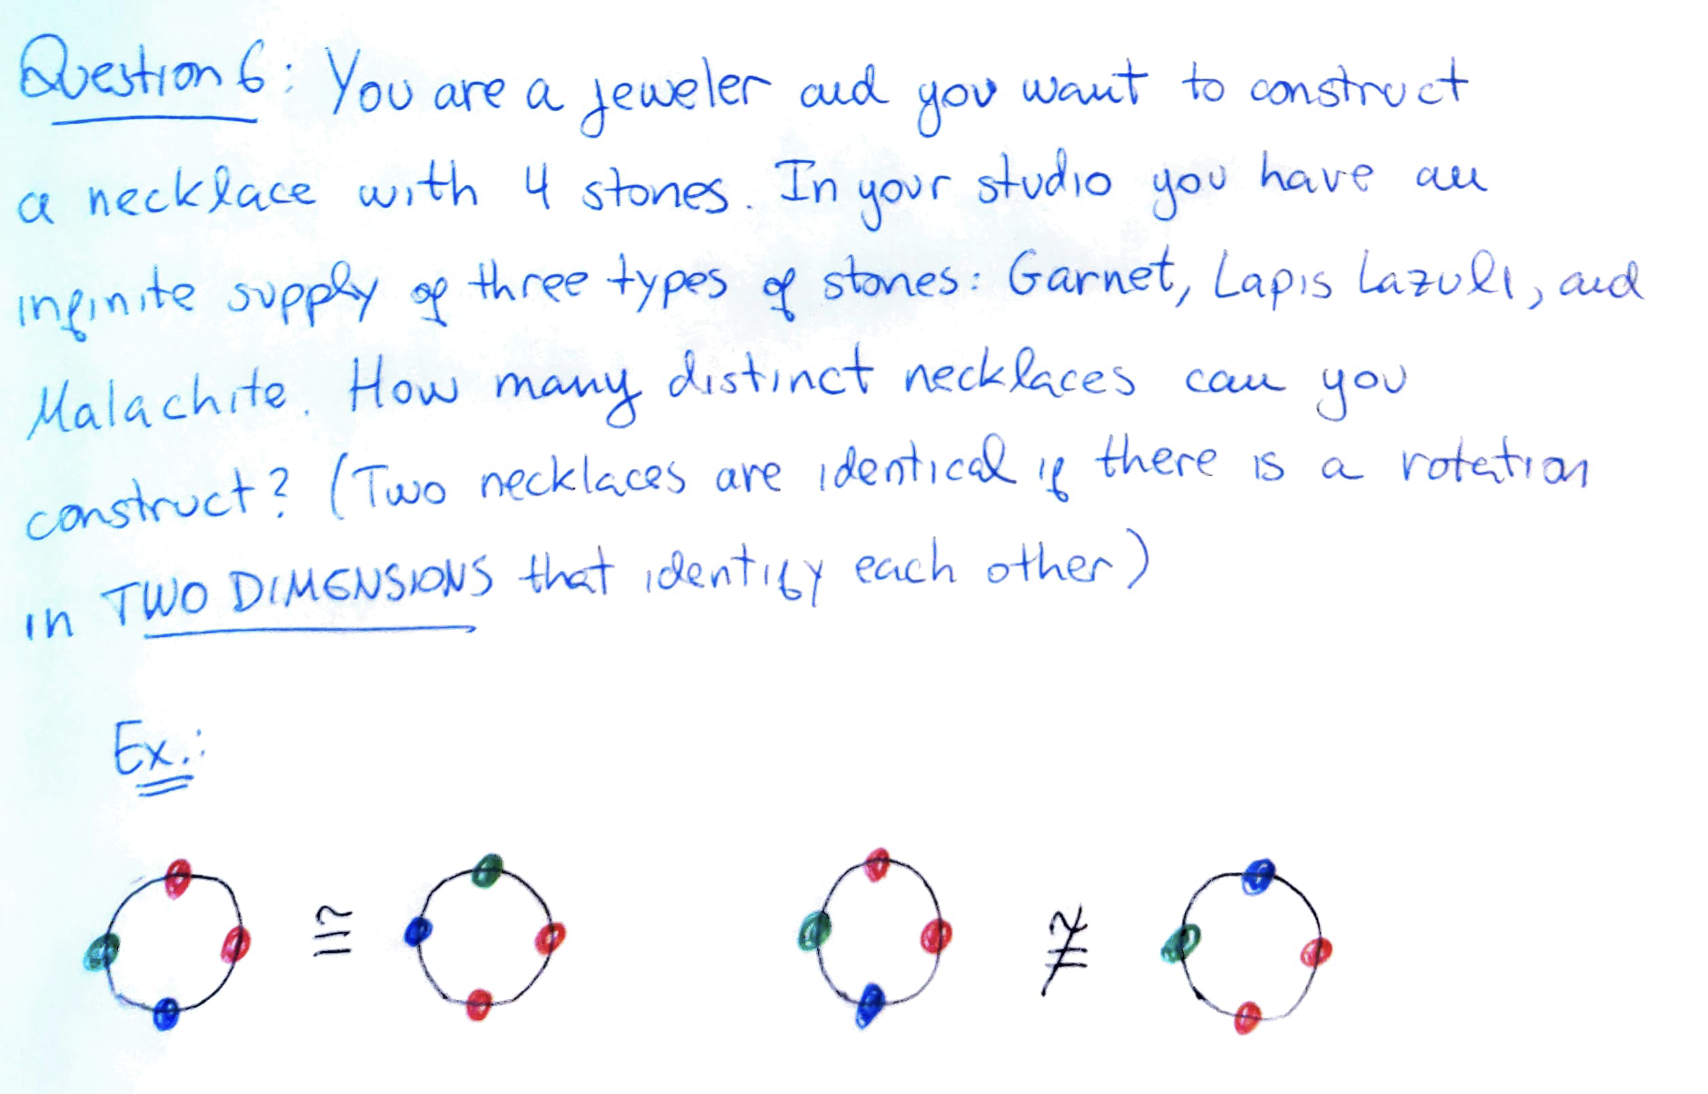 Question 6: You are a jeweler and you want to construct
a necklace with 4 stones. In your studio you have an
infinite supply of three types of stones: Garnet, Lapis Lazuli, and
Malachite. How many distinct necklaces can you
construct? (Two necklaces are identical if there is a rotation
in TWO DIMENSIONS that identify each other)
Ex.:
≅ ≇